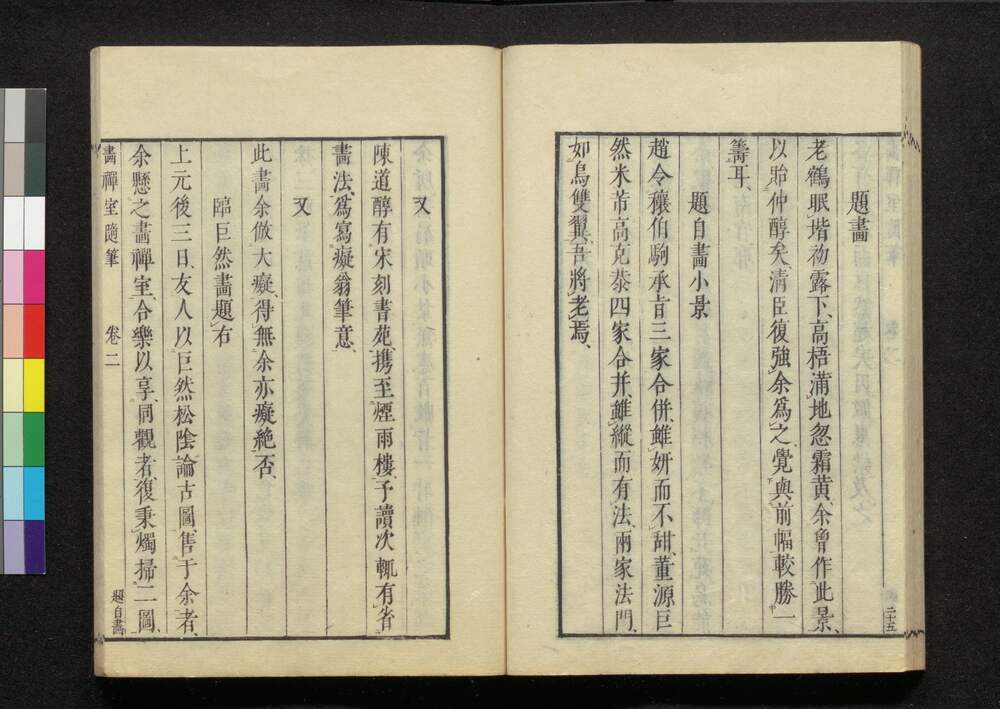 二十五
題畫
老鶴眠堦初露下、高梧滿地忽霜黃、余曾作此景、
以貽仲醇矣、清臣復強余爲之、覺與前幅較勝一
籌耳、
題自畫小景
趙令穰伯駒承旨三家合併、雖妍而不甜、董源巨
然米芾高克恭四家合并、雖縱而有法、兩家法門、
如鳥雙翼、吾將老焉、
又
陳道醇有宋刻書苑、携至煙雨樓、予讀次輒有省
畫法、爲寫癡翁筆意、
又
此畫余倣大癡、得無余亦癡絶否、
臨巨然畫題右
上元後三日、友人以巨然松陰論古圖、售于余者、
余懸之畫禪室、合樂以享、同觀者、復秉燭掃二圖、
畫禪室隨筆 卷二 題自畫